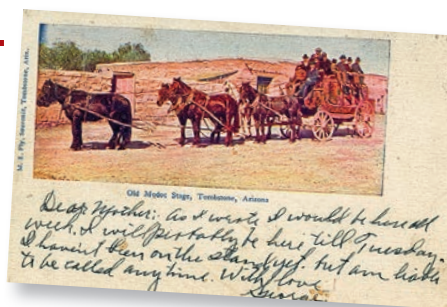 M. E. Fly, Souvenir, Tombstone, Ariz.
Old Modoc Stage, Tombstone, Arizona
Dear Mother: As I wrote I would be here all
week. I will probably be here till Tuesday.
I haven't been on the stand yet but am liable
to be called anytime. With love